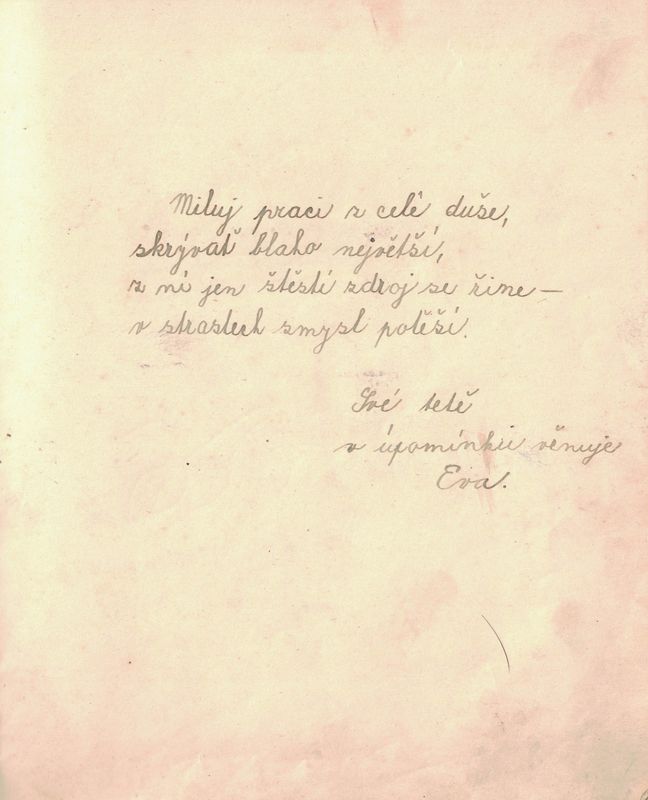 Miluj praci z celé duše,
skrývať blaho největší,
z ní jen štěstí zdroj se řine –
v strastech smysl potěší.
Své tetě
v úpomínku věnuje
Eva.